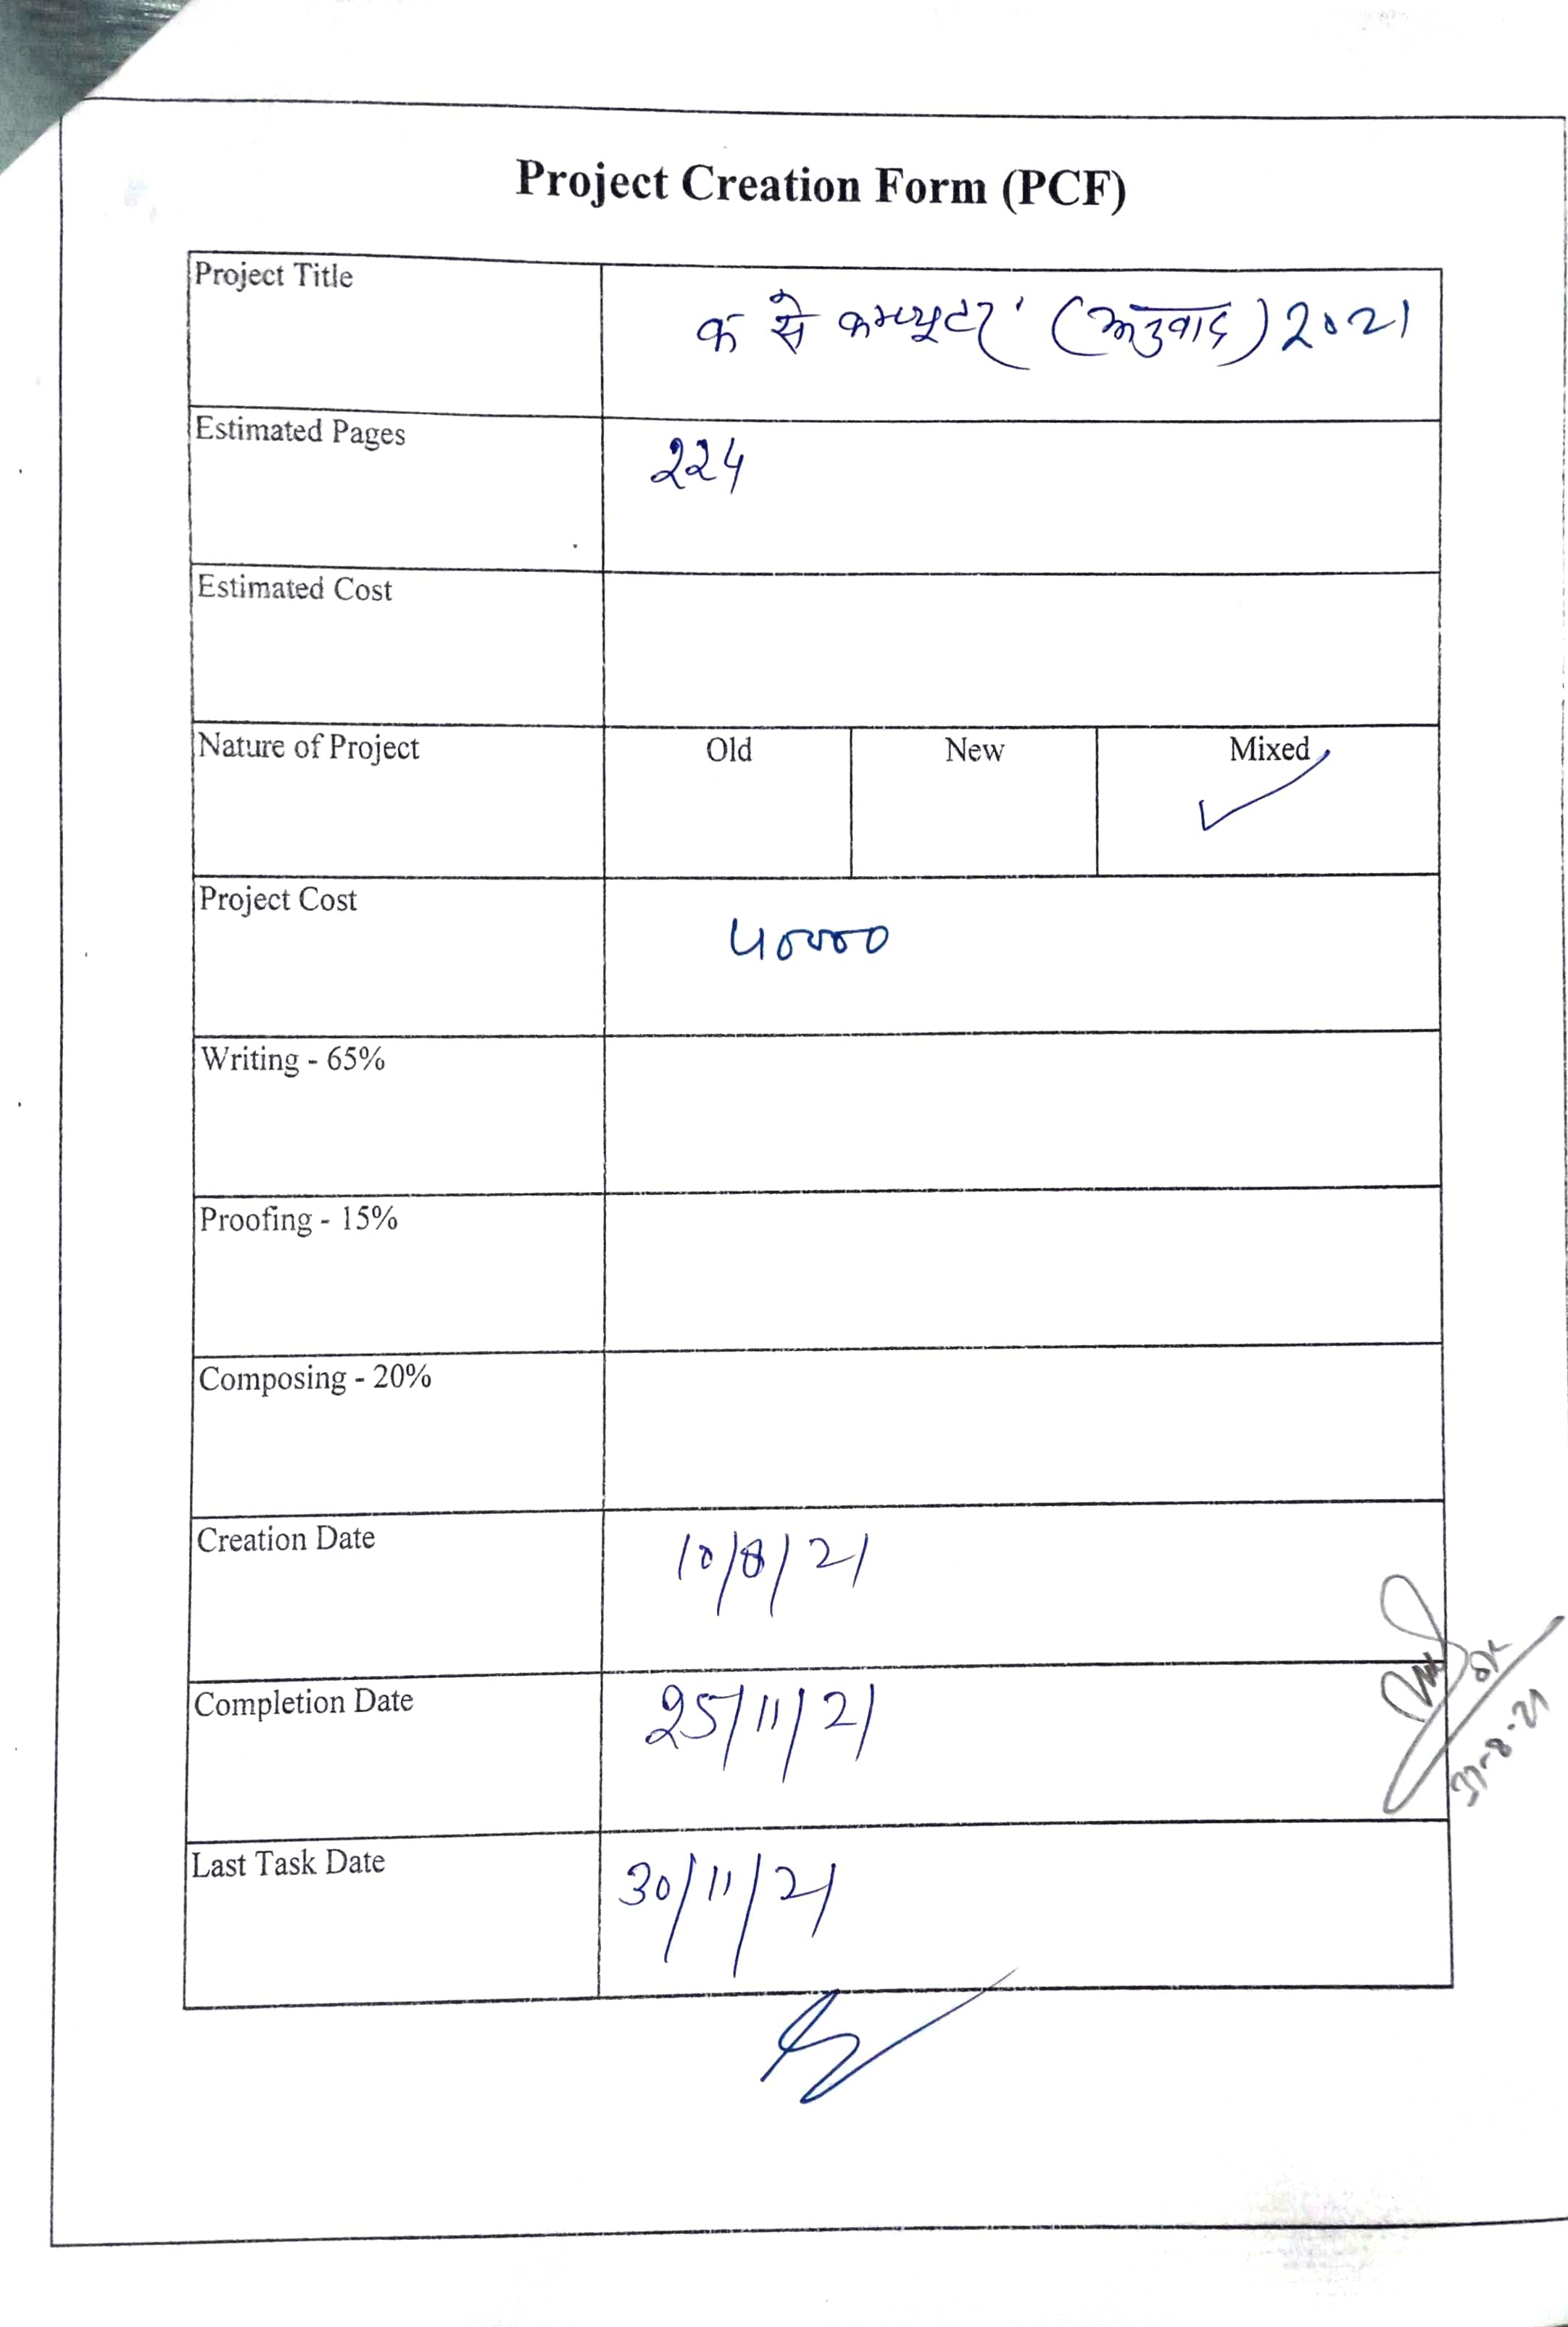 Project Creation Form (PCF)
Project Title
क से कम्प्यूटर' (अनुवाद) 2021
Estimated Pages
224
Estimated Cost
Nature of Project
Old New Mixed
Project Cost
40000
Writing - 65%
Proofing - 15%
Composing - 20%
Creation Date
10/8/21
Completion Date
25/11/21
OK
31-8-21
Last Task Date
30/11/21